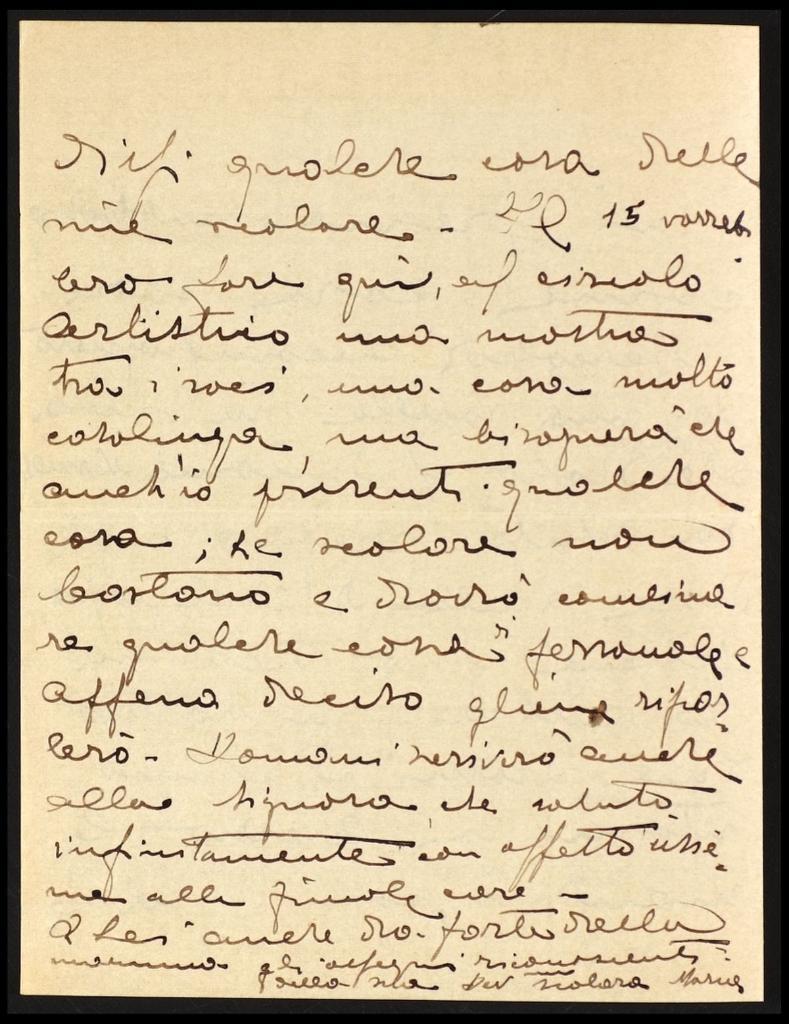 qualche cosa delle
mie scolare - Il 15 vorreb
bero fare qui, al circolo
Artistico una mostra
tra i soci, una cosa molto
casalinga, ma bisognerà che
anch'io presenti qualche
cosa; Le scolare non
bastano e dovrò comincia
re qualche cosa di personale e
appena deciso gliene ripar=
lerò - Domani scriverò anche
alla Signora che saluto
infinitamente con affetto assie=
me alle piccole care -
A Lei anche da parte della
mamma gli ossequi riconoscenti
della sua scolara Maria